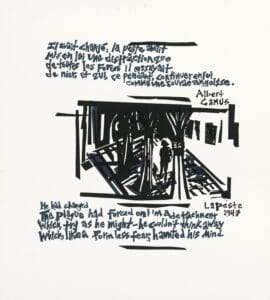 Il avait changé, la peste avait
mis en lui une distraction que
de toutes les forces il essayait
de nier et qui, cependant, continuer en lui
comme une sourde angoisse.
Albert
Camus
La peste
1947
He had changed
The plague had forced on him a detachment
which, try as he might - he couldn't think away
Which like a formless fear, haunted his mind